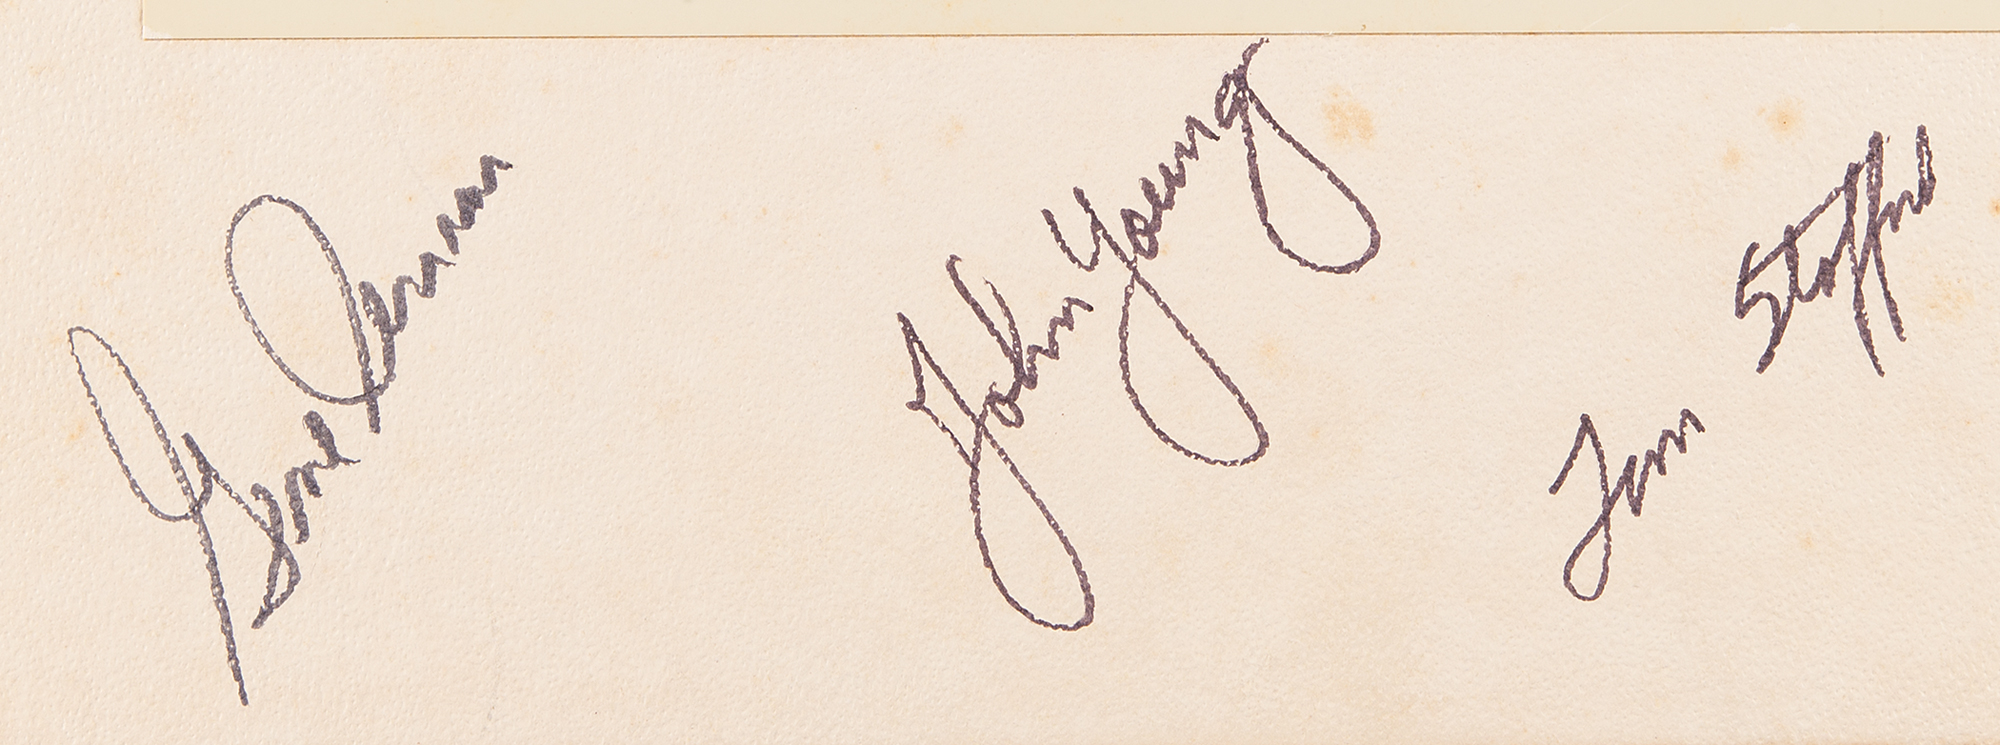 Gene Cernan
John Young
Tom Stafford